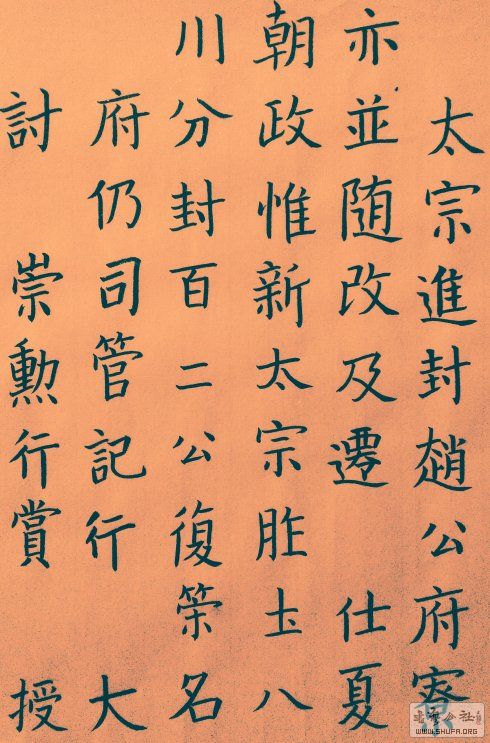 太宗進封趙公府寮
亦並随改及遷 仕夏
朝政惟新太宗胙土八
川分封百二公復策名
府仍司管記行 大
討 崇勲行賞 授
WWW.SHUFA.ORG